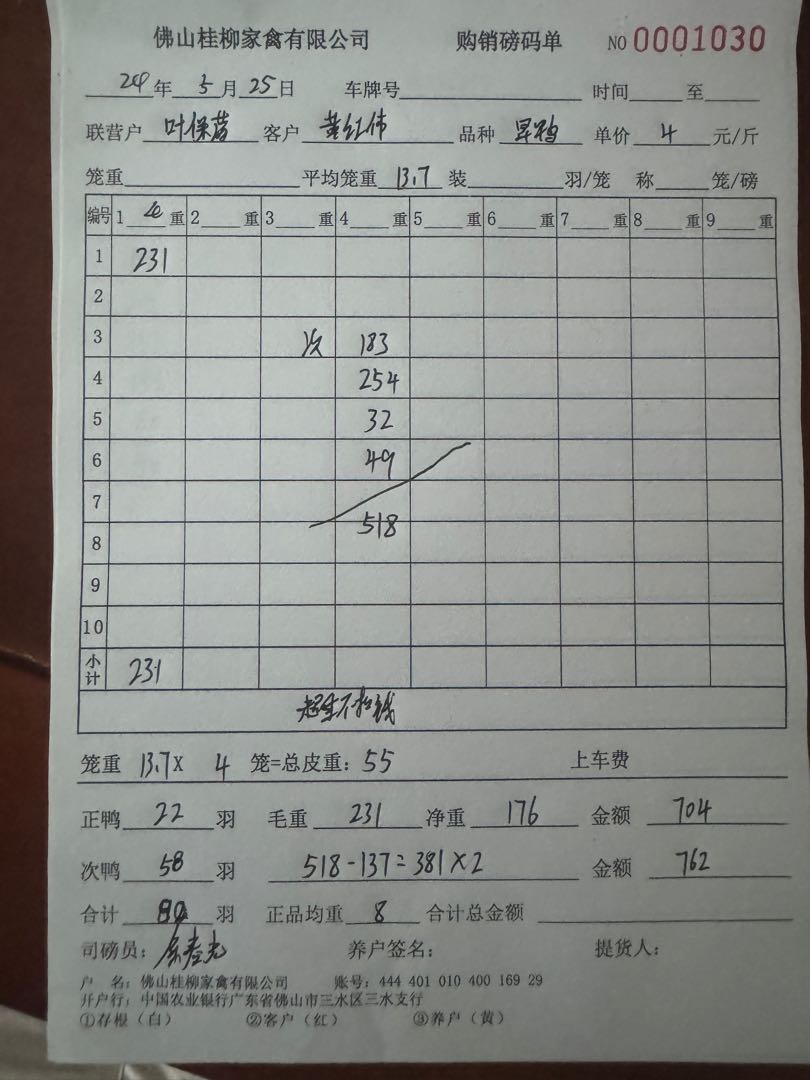 佛山桂柳家禽有限公司 购销磅码单 NO 0001030
24年 5月 25日 车牌号 时间 至
联营户 叶保营 客户 黄红伟 品种 旱鸭 单价 4 元/斤
笼重 平均笼重 13.7 装 羽/笼 称 笼/磅
编号 1 重 2 重 3 重 4 重 5 重 6 重 7 重 8 重 9 重
1 231
2
3 次 183
4 254
5 32
6 49
7
8 518
9
10
小计 231
不扣钱
笼重 13.7X 4 笼=总皮重: 55 上车费
正鸭 22 羽 毛重 231 净重 176 金额 704
次鸭 58 羽 518-137=381X2 金额 762
合计 80 羽 正品均重 8 合计总金额
司磅员: 养户签名: 提货人:
户 名: 佛山桂柳家禽有限公司 账号: 444 401 010 400 169 29
开户行: 中国农业银行广东省佛山市三水区三水支行
①存根(白) ②客户(红) ③养户(黄)